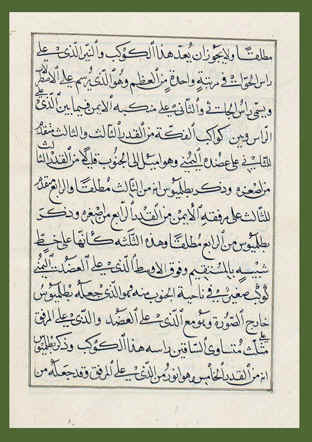 مطلقا ولا يجوز ان يعد هذا الكوكب والنير الذى على
راس الجاثى فى مرتبة واحدة من العظم وهو الذى يرسم على الاصطرلاب
ويسمى راس الجاثى والثانى على منكبه الايمن فيما بين الذى على
الراس وبين كواكب الفكة من القدر الثالث والثالث متقدم
للثانى على عضده اليمنى وهو اميل الى الجنوب قليلا من القدر الثالث
من اصغره وذكر بطليموس انه من الثالث مطلقا والرابع متقدم
للثالث على مرفقه الايمن من القدر الرابع من اصغره وذكر
بطليموس من الرابع مطلقا وهذه الثلثة كانها على خط
شبيه بالمستقيم وفوق الاوسط الذى على العضد اليمنى
كوكب صغير فى ناحية الجنوب منه هو الذى جعله بطليموس
خارج الصورة وهو مع الذى على العضد والذى على المرفق على
مثلث متساوى الساقين راسه هذا الكوكب وذكر بطليموس
انه من القدر الخامس وهو انور من الذى على المرفق وقد جعله من